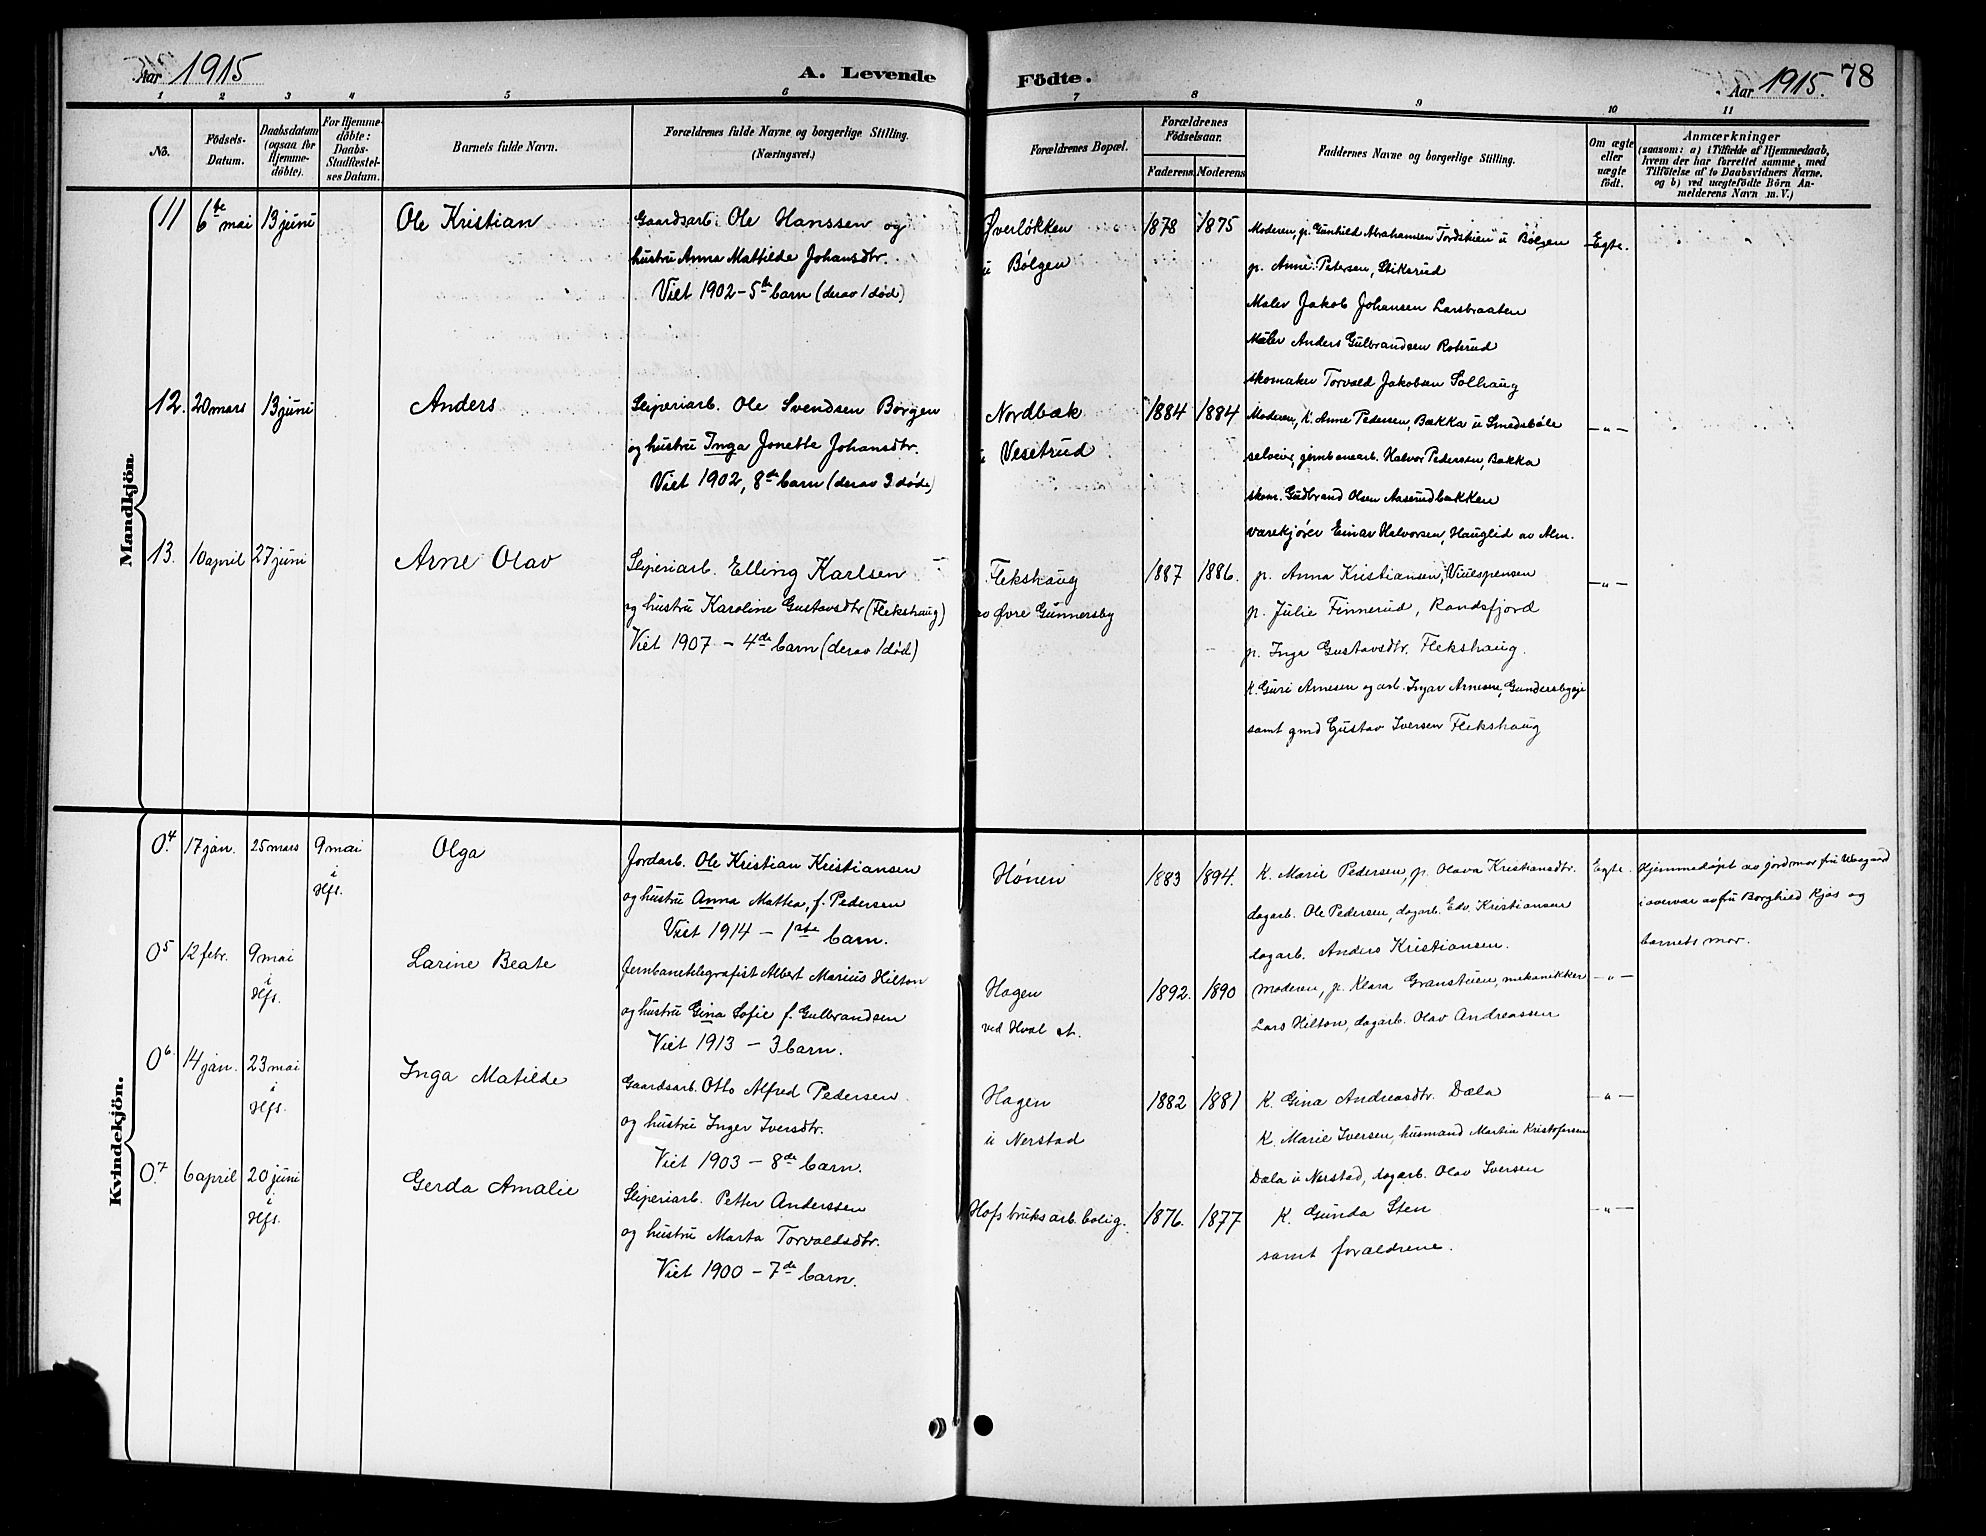 Aar 1915
A. Levende
Födte.
Aar 1915.
78
1 2 3 4 5 6 7 8 9 10 11
No.
Födsels-
Datum.
Daabsdatum
(ogsaa for
Hjemme-
döbte).
For Hjemme-
döbte:
Daabs-
Stadfæstel-
ses Datum.
Barnets fulde Navn.
Forældrenes fulde Navne og borgerlige Stilling.
(Næringsvei.)
Forældrenes Bopæl.
Forældrenes
Födselsaar.
Faderens Moderens
Faddernes Navne og borgerlige Stilling.
Om ægte
eller
uægte
födt.
Anmærkninger
(saasom: a) i Tilfælde af Hjemmedaab,
hvem der har forrettet samme, med
Tilföielse af to Daabsvidners Navne.
og b) ved uægtefödte Börn An-
melderens Navn m. V.)
Mandkjön
11
6te mai
13 juni
Ole Kristian
Gaardsarb. Ole Hanssen og
hustru Anna Mathilde Johansdtr.
Viet 1902 - 5te barn (derav 1 død)
Øverløkken
u Bølgen
1878
1875
Moderen, p. Gunhild Abrahamsen Tordskien u Bølgen
p. Anne Petersen, Stiksrud
Maler Jakob Johansen Larsbraaten
Maler Anders Gulbrandsen Roterud
skomaker Torvald Jakobsen Solhaug
Egte.
12.
20 mars
13 juni
Anders
Sliperiarb. Ole Svendsen Borgen
og hustru Inga Jonette Johansdtr.
Viet 1902, 8de barn (derav 3 døde)
Nordbæk
u Vesetrud
1884
1884
Moderen, K. Anne Pedersen, Bækka u Smedsbøle
selveier, jernbanearb. Halvor Pedersen, Bakka
skom. Gudbrand Olsen Aaserudbækken
varekjører Einar Halvorsen, Hauglid av Alm.
— " —
13.
10 april
27 juni
Arne Olav
Sliperiarb. Elling Karlsen
og hustru Karoline Gustavsdtr (Flekshaug)
Viet 1907 - 4de barn (derav 1 død)
Flekshaug
av Øvre Gunnersby
1887
1886.
p. Anna Kristiansen, Viulspensen
p. Julie Finnerud, Randsfjord
p. Inga Gustavsdtr. Flekshaug.
K. Guri Arnesen og arb. Ingar Arnesen, Gundersbyeje
samt gmd Gustav Iversen Flekshaug
— " —
Kvindekjön.
04.
17 jan.
25 mars
9 mai
i
Hfs.
Olga
Jordarb. Ole Kristian Kristiansen
og hustru Anna Mathea, f. Pedersen
Viet 1914 - 1ste barn.
Hønen
1883
1894.
K. Marie Pedersen, p. Olava Kristiansdtr.
dagarb. Ole Pedersen, dagarb. Edv. Kristiansen
dagarb. Anders Kristiansen.
Egte.
Hjemmedøpt av jordmor fru
i overvær av fru Borghild Kjøs og
barnets mor.
05
12 febr.
9 mai
i
Hfs.
Larine Beate
Jernbanetelegrafist Albert Marius Hilton
og hustru Gina Sofie f. Gulbrandsen
Viet 1913 - 3 barn.
Hagen
ved Hval st.
1892.
1890
Moderen, p. Klara Granstuen, mekanikker
Lars Hilton, dagarb. Olav Andreassen
— " —
06.
14 jan.
23 mai
i
Hfs.
Inga Matilde
Gaardsarb. Otto Alfred Pedersen
og hustru Inger Iversdtr.
Viet 1903 - 8de barn.
Hagen
u Nerstad
1882
1881
K. Gina Andreasdtr. Dæla
K. Marie Iversen, husmand Martin Kristofersen
Dæla u Nerstad, dagarb. Olav Iversen
— " —
07.
6 april
20 juni
i
Hfs.
Gerda Amalie
Sliperiarb. Petter Anderssen
og hustru Marta Torvaldsdtr.
Viet 1900 - 7de barn.
Hofs bruks arb. bolig.
1876.
1877
K. Gunda Sten
samt forældrene.
— " —